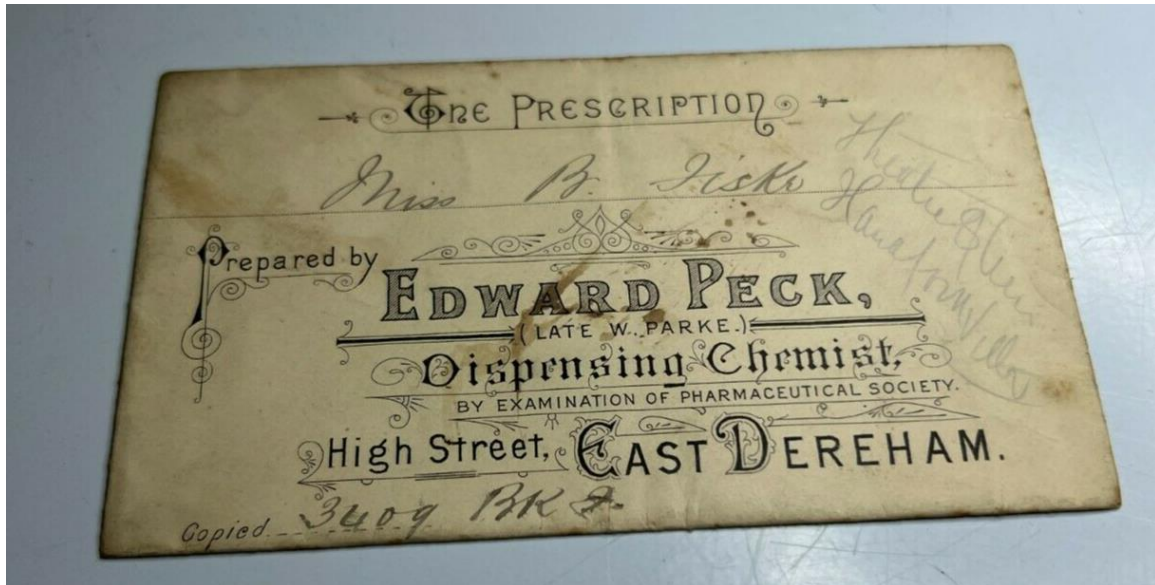 The Prescription
Miss B. Fiske
Prepared by
EDWARD PECK,
(LATE W. PARKE.)
Dispensing Chemist,
BY EXAMINATION OF PHARMACEUTICAL SOCIETY.
High Street, EAST DEREHAM.
Copied 3409 BK